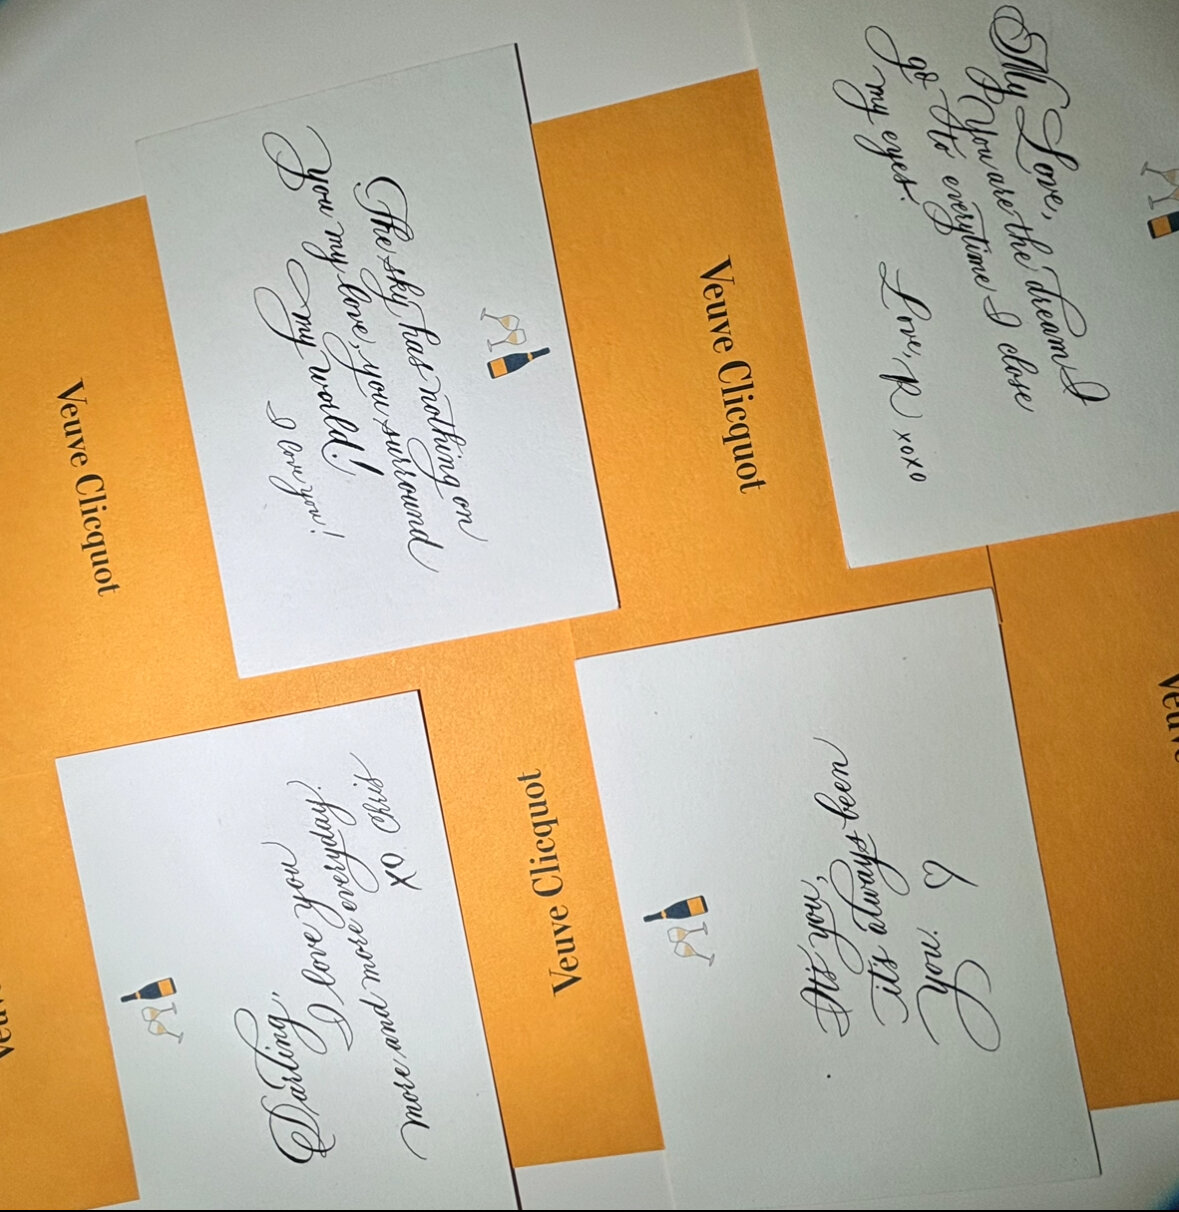 My Love,
You are the dream I
go to everytime I close
my eyes.
Love, R xoxo
The sky has nothing on
you my love, you surround
my world!
I love you!
Veuve Clicquot
Veuve Clicquot
Veuve Clicquot
Veuve
It's you,
it's always been
you. ♡
Darling,
I love you
more and more everyday.
XO Chris
Veuv